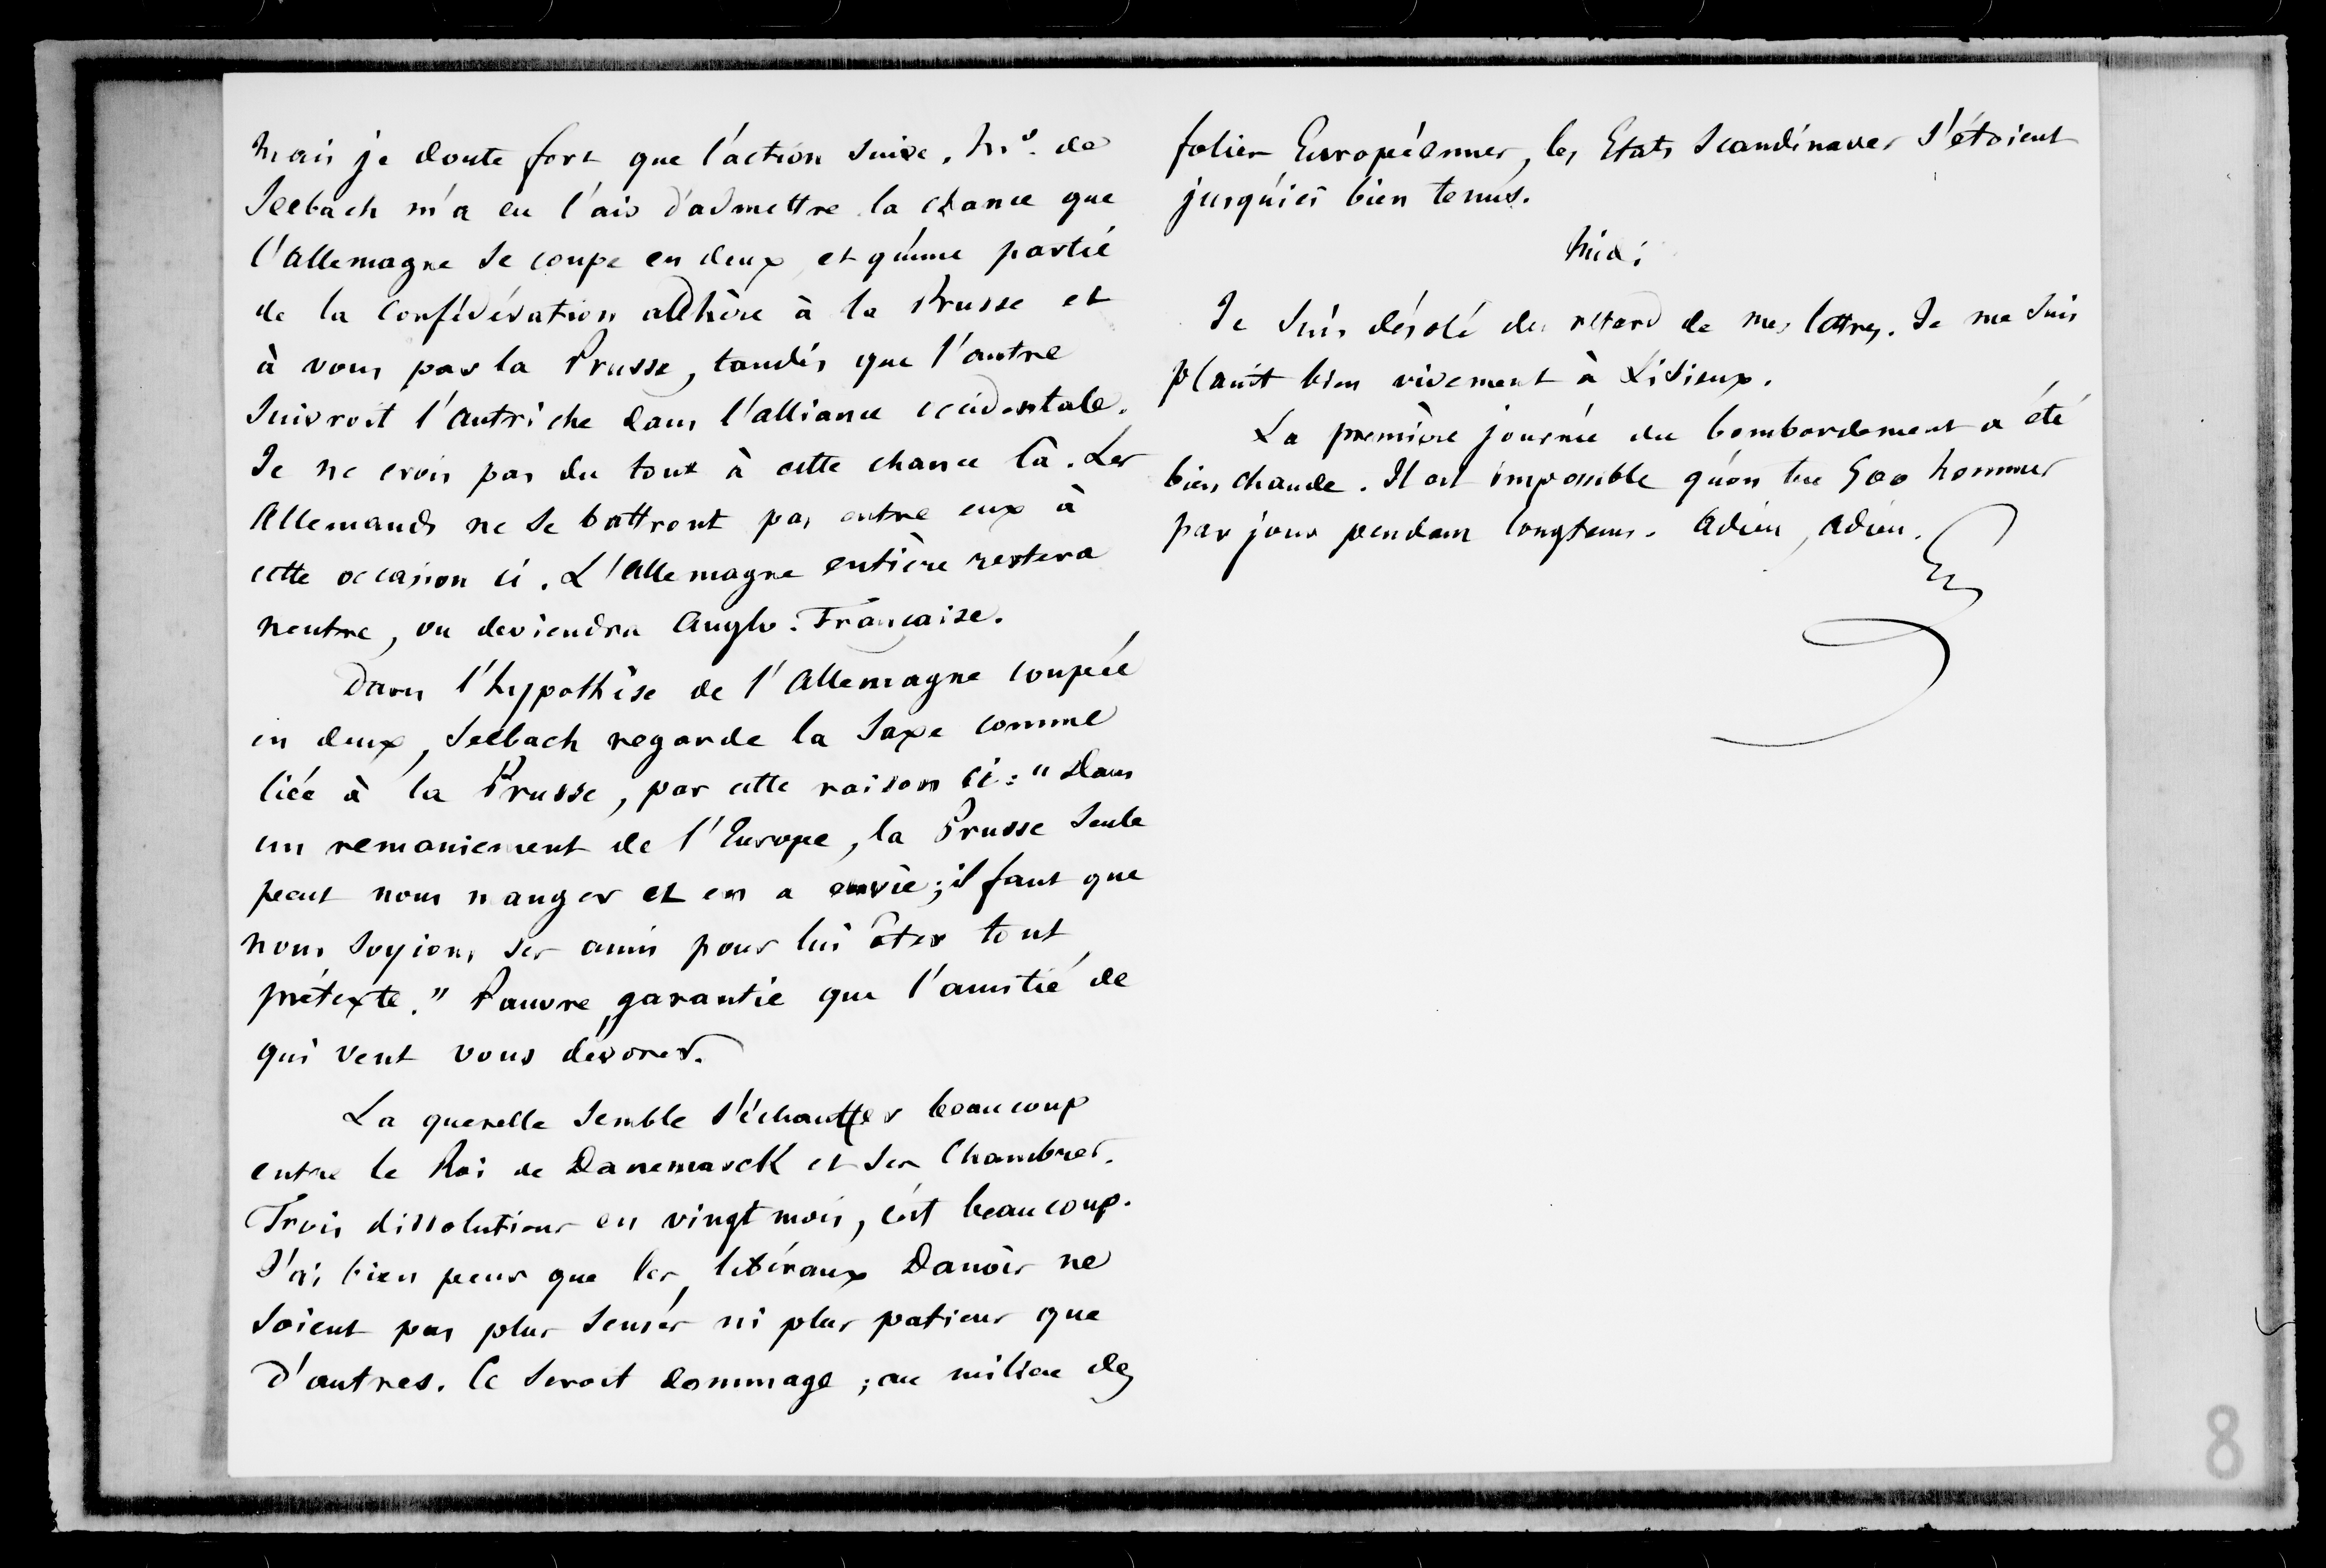 Mais je doute fort que l'action suive. Mr. de
Seebach m'a eu l'air d'admettre la chance que
l'Allemagne se coupe en deux, et qu'une partie
de la Confédération adhère à la Prusse et
à vous par la Prusse, tandis que l'autre
suivroit l'Autriche dans l'alliance occidentale.
Je ne crois pas du tout à cette chance là. Les
Allemands ne se battront pas entre eux à
cette occasion ci. L'Allemagne entière restera
neutre, ou deviendra Anglo-Française.
Dans l'hypothèse de l'Allemagne coupée
en deux, Seebach regarde la Saxe comme
liée à la Prusse, par cette raison ci: "Dans
un remaniement de l'Europe, la Prusse seule
peut nous manger et en a envie; il faut que
nous soyions ses amis pour lui ôter tout
prétexte." Pauvre garantie que l'amitié de
qui veut vous dévorer.
La querelle semble s'échauffer beaucoup
entre le Roi de Danemarck et ses Chambres.
Trois dissolutions en vingt mois, c'est beaucoup.
J'ai bien peur que les libéraux Danois ne
soient pas plus sensés ni plus patiens que
d'autres. Ce seroit dommage; au milieu des
folies Européennes, les Etats Scandinaves s'étoient
jusqu'ici bien tenus.
Midi
Je suis désolé du retard de mes lettres. Je me suis
plaint bien vivement à Lisieux.
La première journée du bombardement a été
bien chaude. Il est impossible qu'on tue 500 hommes
par jour pendant longtems. Adieu, Adieu.
8